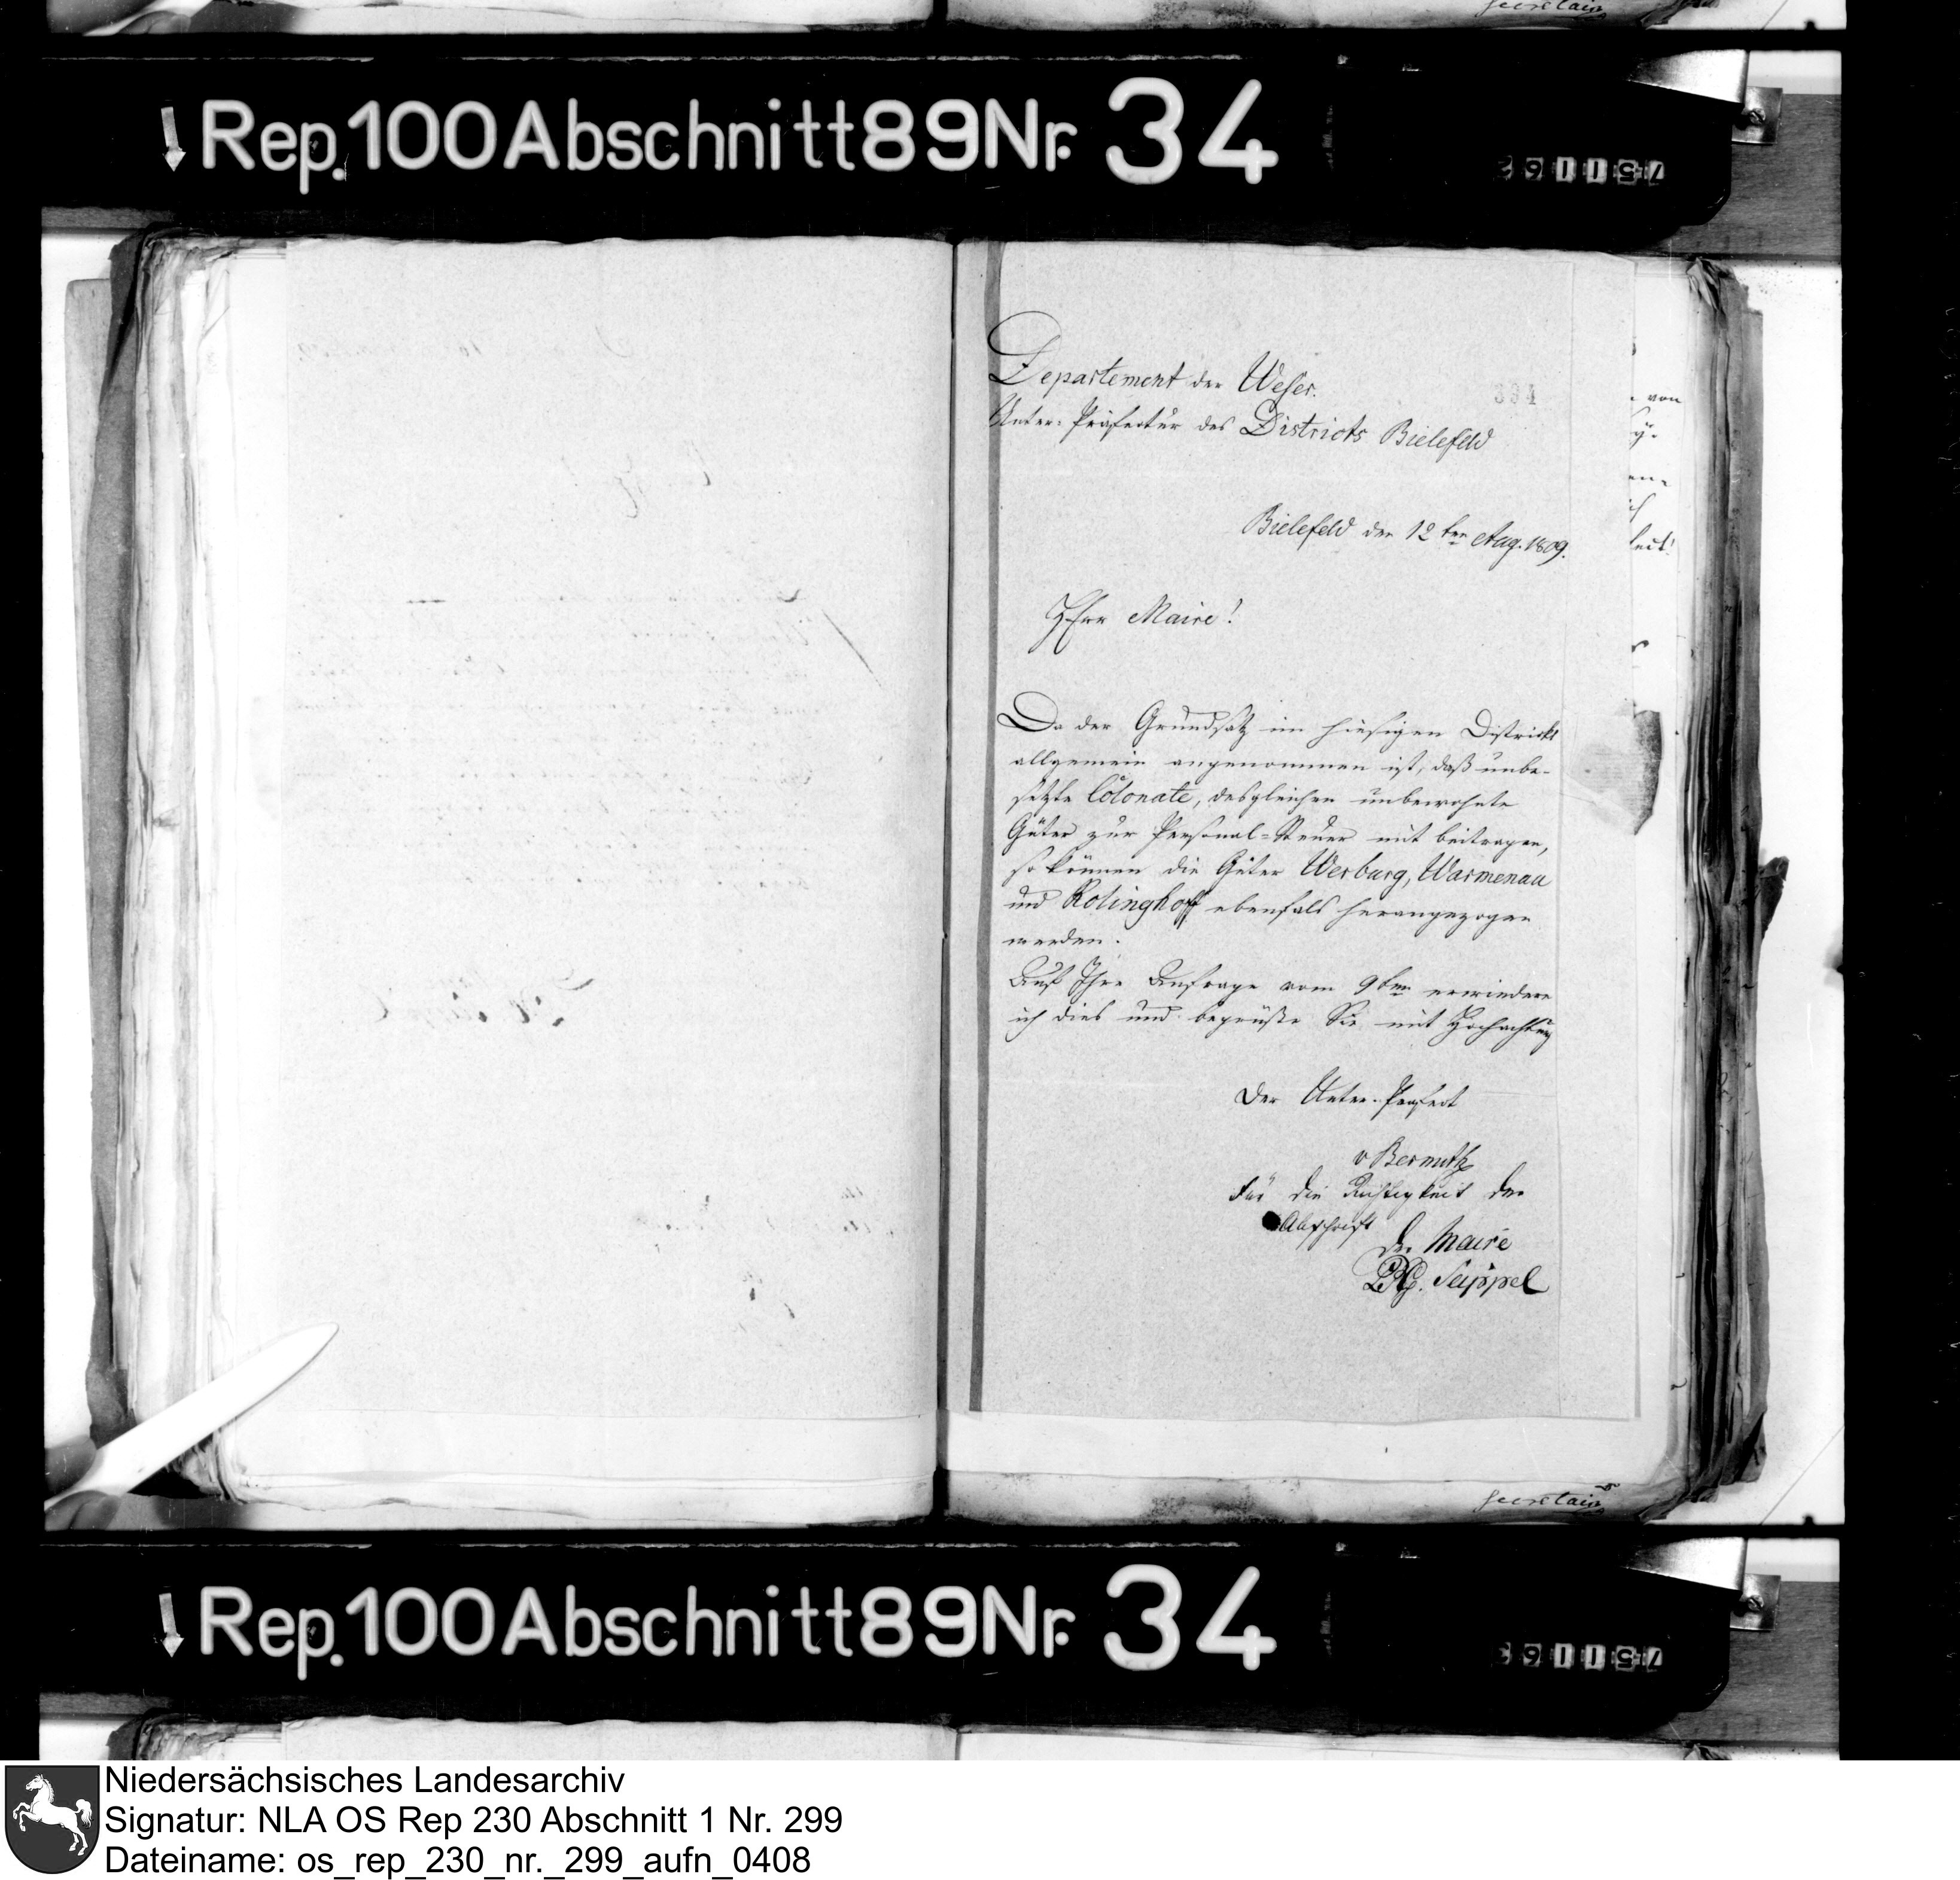 secretair
Rep. 100 Abschnitt 89 Nr. 34
751162
Departement der Weser.
334
Unter-Präfectur des Districts Bielefeld
Bielefeld den 12ten Aug. 1809.
Herr Maire!
Da der Grundsatz im hiesigen District
allgemein angenommen ist, daß unbe-
setzte Colonate, desgleichen unbewohnte
Güter zur Personal-Steuer mit beitragen,
so können die Güter Werburg, Warmenau
und Kolinghoff ebenfals herangezogen
werden.
Auf Ihre Anfrage vom 9ten erwiedere
ich dies und begrüße Sie mit Hochachtung
Der Unter-Präfect
v Bernuth
Für die Richtigkeit der
Abschrift
der Maire
Seippel
von
secretair
Rep. 100 Abschnitt 89 Nr. 34
751162
Niedersächsisches Landesarchiv
Signatur: NLA OS Rep 230 Abschnitt 1 Nr. 299
Dateiname: os_rep_230_nr._299_aufn_0408